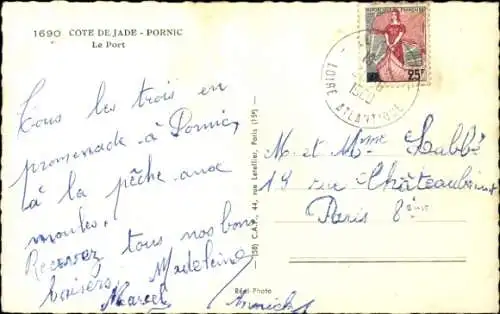 1690 COTE DE JADE - PORNIC
Le Port
Tous les trois en
promenade à Pornic,
à la pêche aux
moules.
Recevez tous nos bons
baisers Madeleine
Marcel Annick
(58) C.A.P., 44, rue Letellier, Paris (15e)
Réel-Photo
25F
LOIRE ATLANTIQUE
M. et Mme Labbé
14 rue Châteaubriand
Paris 8ème